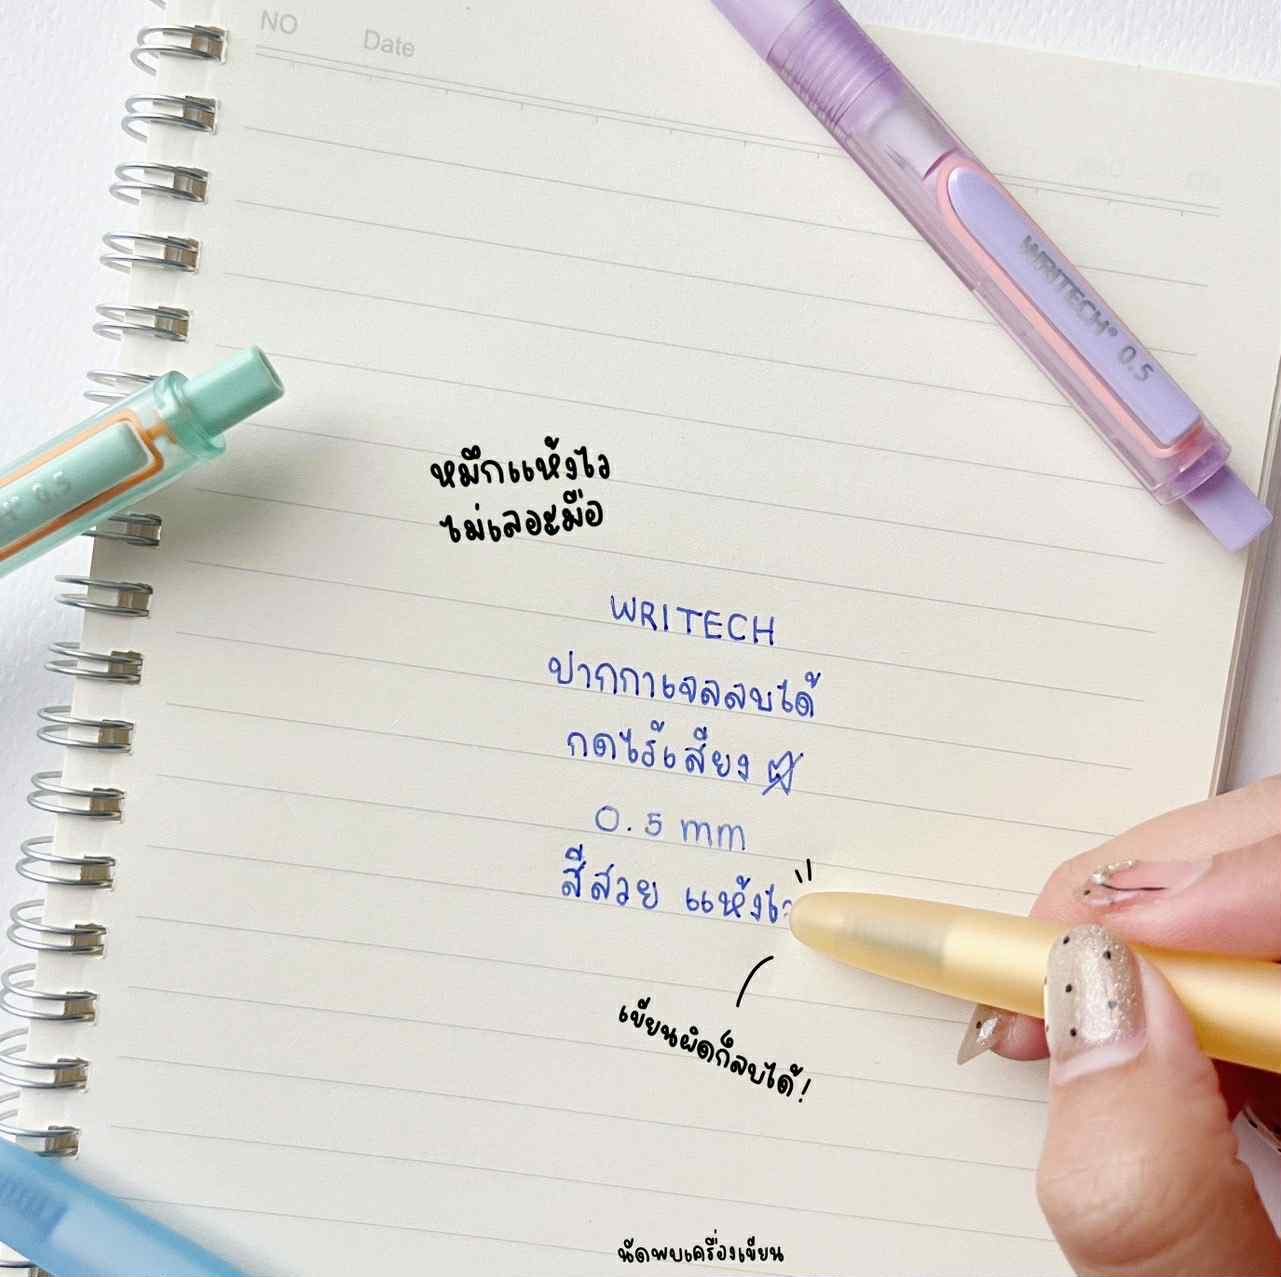 NO Date
WRITECH® 0.5
0.5
หมึกแห้งไว
ไม่เลอะมือ
WRITECH
ปากกาเจลลบได้
กดไร้เสียง
0.5 mm
สีสวย แห้งไว
เขียนผิดก็ลบได้!
นัดพบเครื่องเขียน